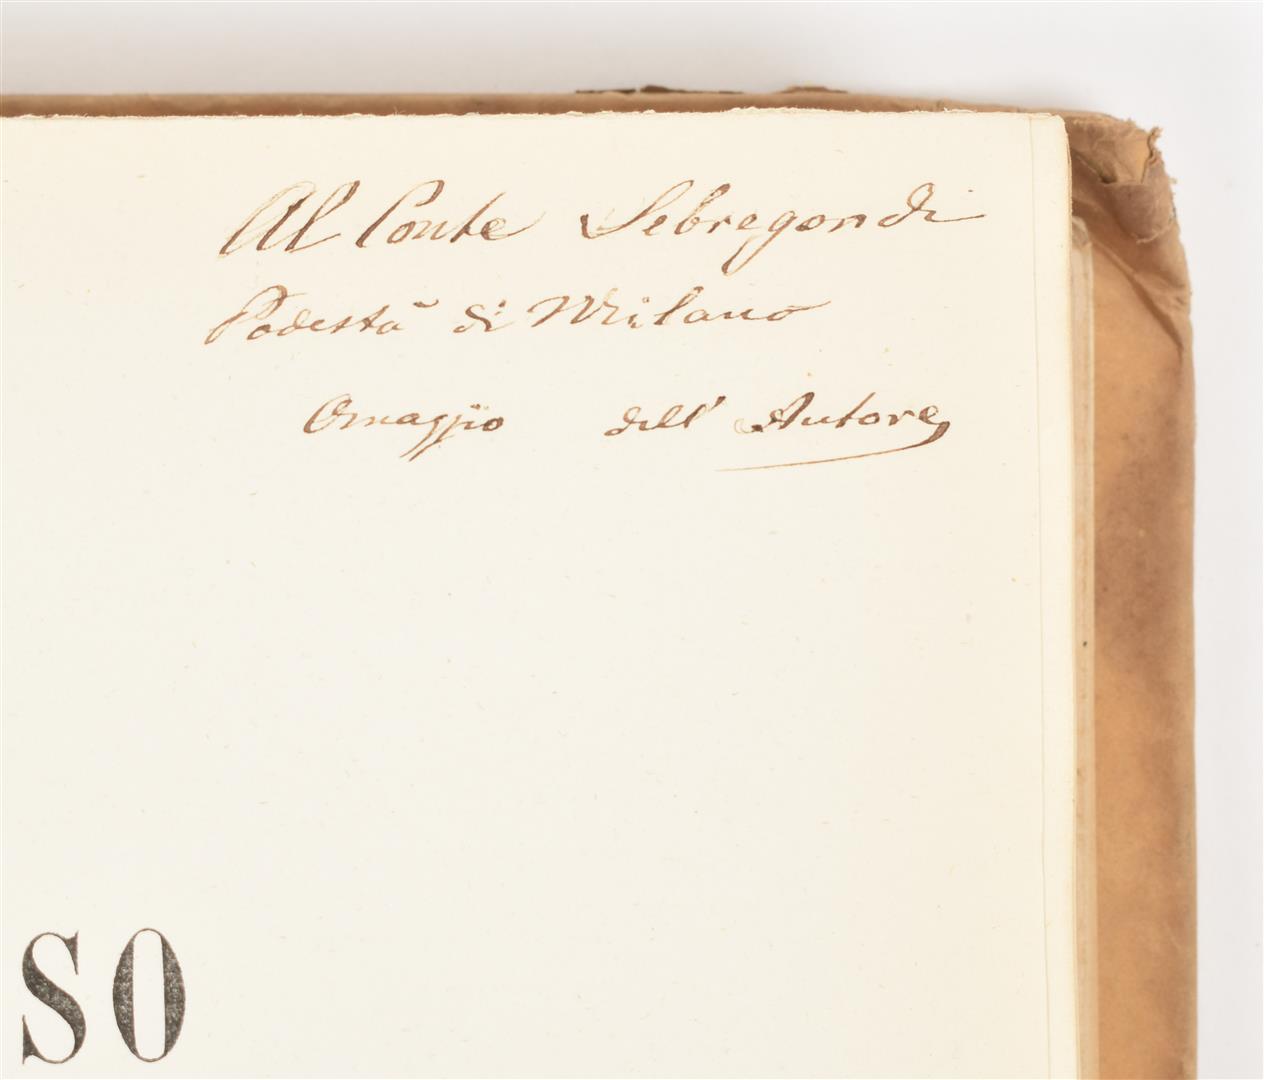 Al Conte Sebregondi
Podestà di Milano
Omaggio dell' Autore
SO